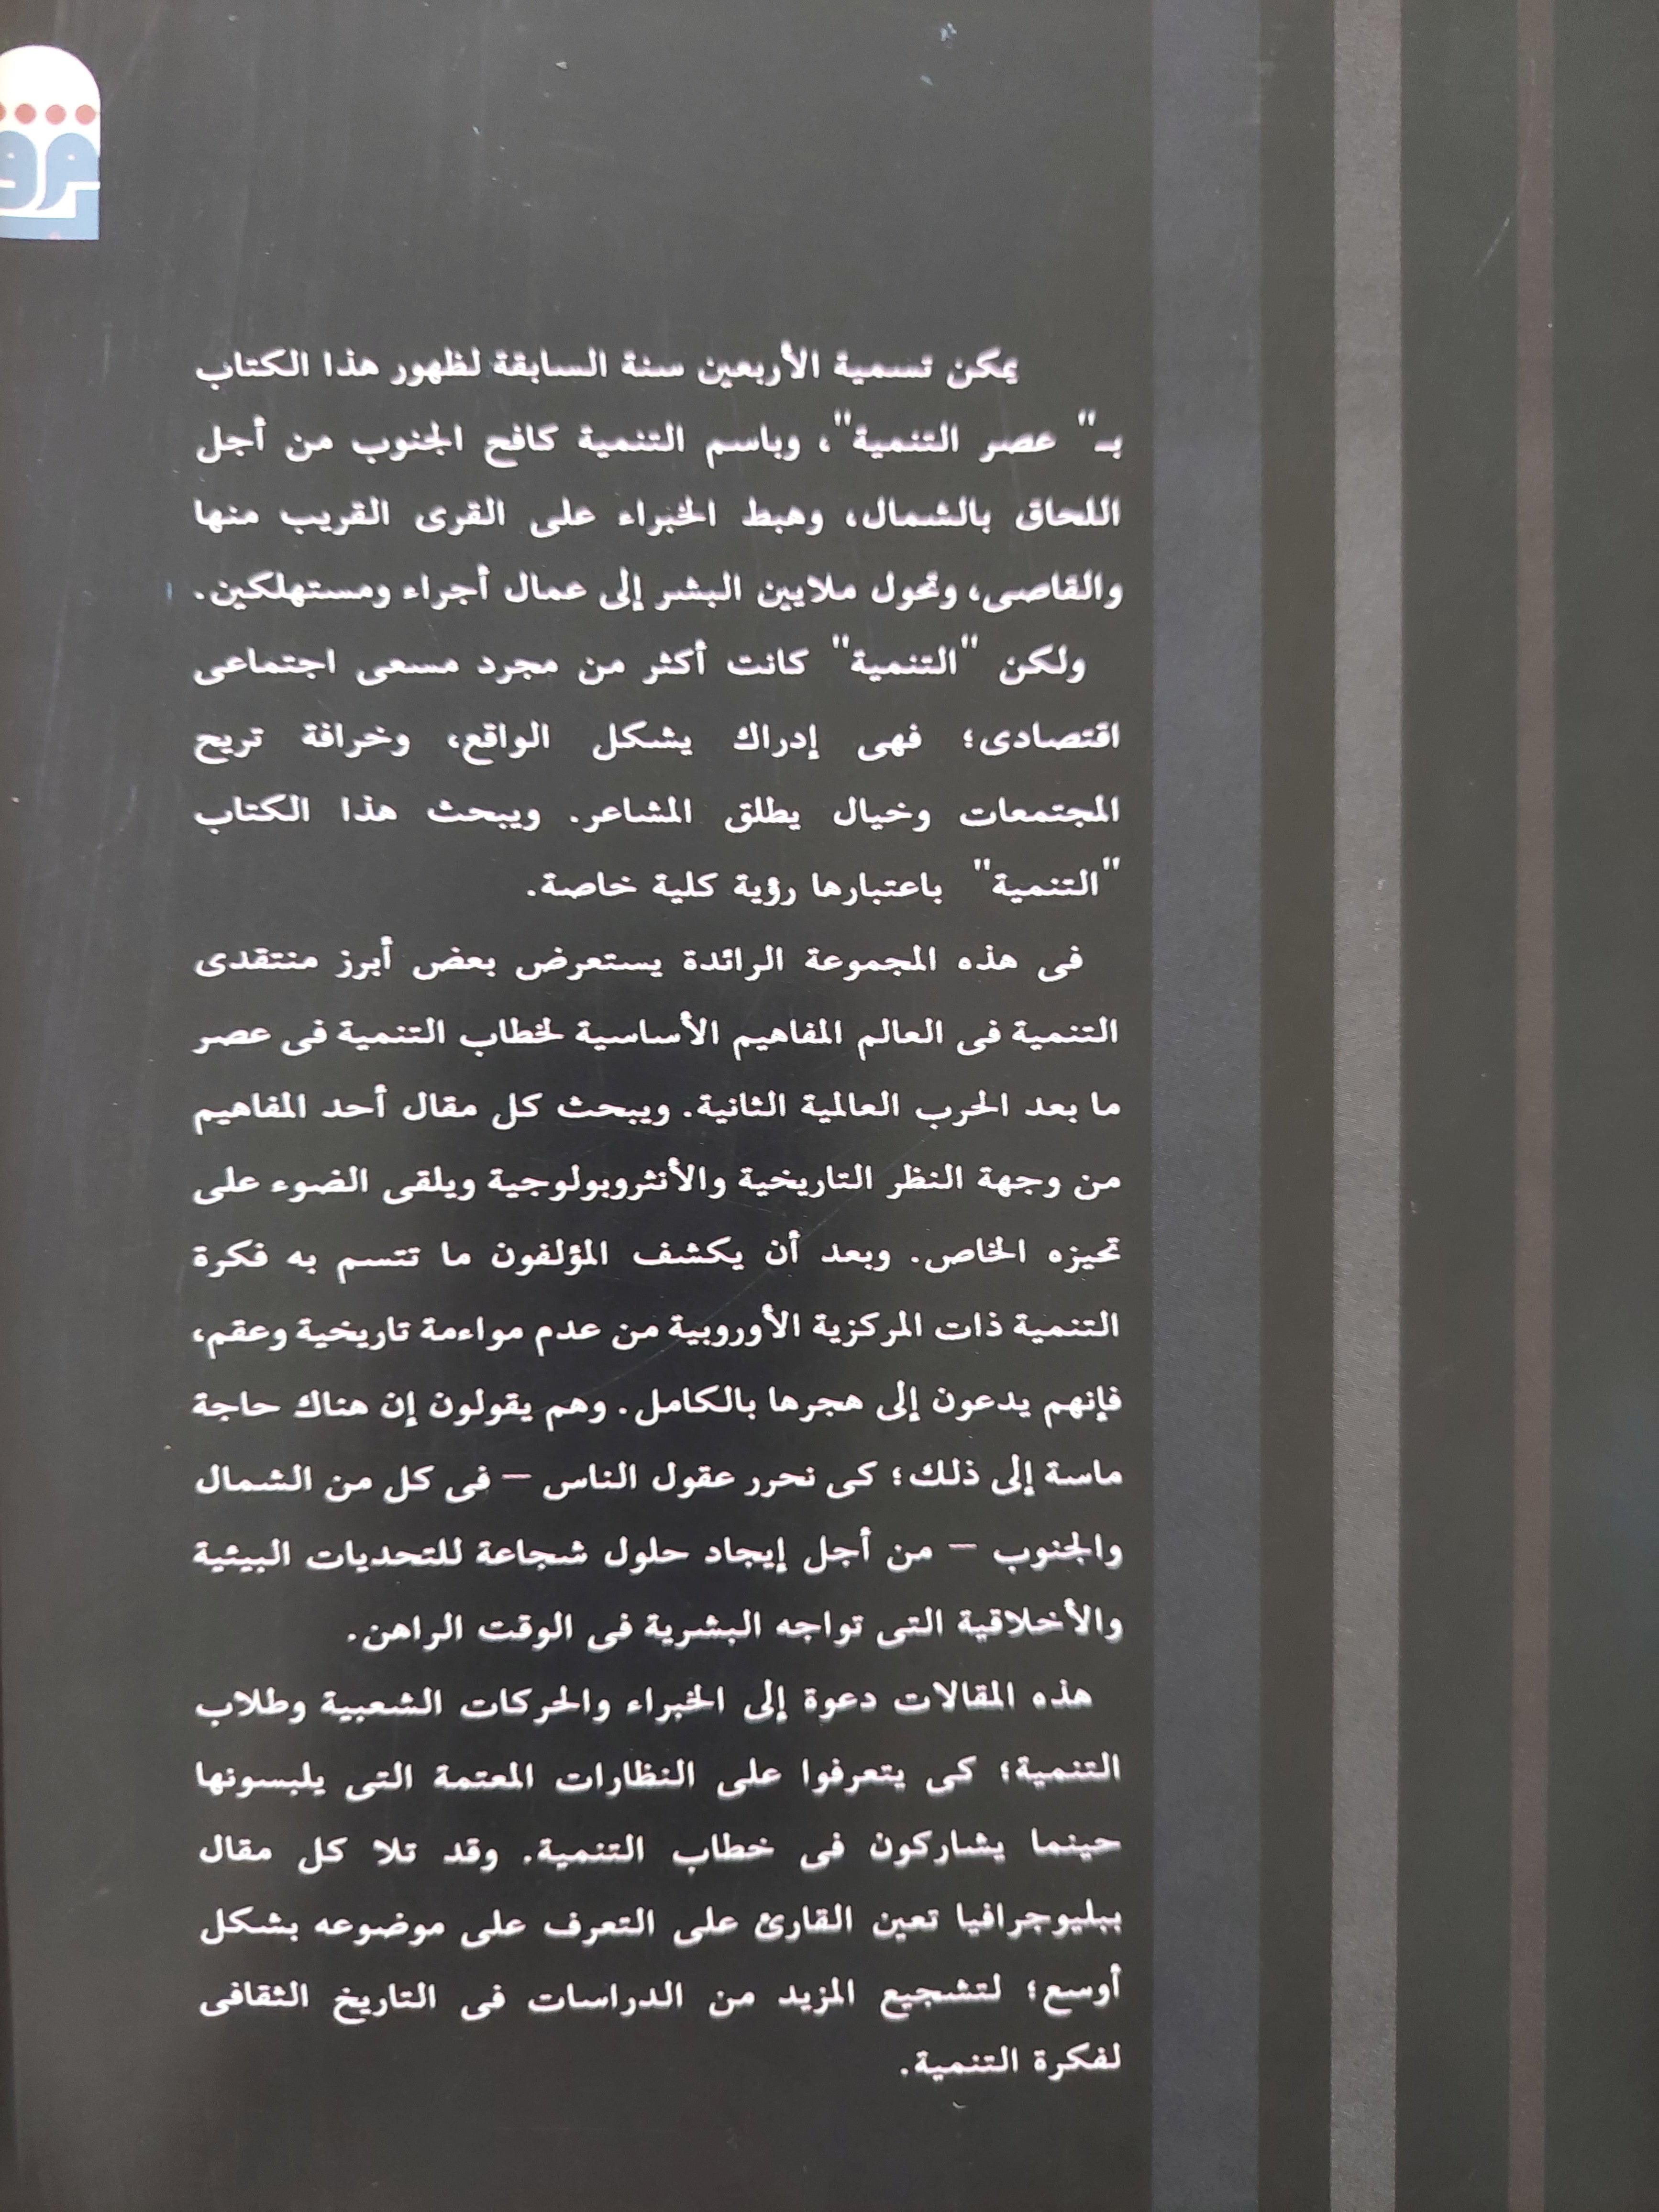 يمكن تسمية الأربعين سنة السابقة لظهور هذا الكتاب
بـ" عصر التنمية"، وباسم التنمية كافح الجنوب من أجل
اللحاق بالشمال، وهبط الخبراء على القرى القريب منها
والقاصى، وتحول ملايين البشر إلى عمال أجراء ومستهلكين.
ولكن "التنمية" كانت أكثر من مجرد مسعى اجتماعى
اقتصادى؛ فهى إدراك يشكل الواقع، وخرافة تريح
المجتمعات وخيال يطلق المشاعر. ويبحث هذا الكتاب
"التنمية" باعتبارها رؤية كلية خاصة.
فى هذه المجموعة الرائدة يستعرض بعض أبرز منتقدى
التنمية فى العالم المفاهيم الأساسية لخطاب التنمية فى عصر
ما بعد الحرب العالمية الثانية. ويبحث كل مقال أحد المفاهيم
من وجهة النظر التاريخية والأنثروبولوجية ويلقى الضوء على
تحيزه الخاص. وبعد أن يكشف المؤلفون ما تتسم به فكرة
التنمية ذات المركزية الأوروبية من عدم مواءمة تاريخية وعقم،
فإنهم يدعون إلى هجرها بالكامل. وهم يقولون إن هناك حاجة
ماسة إلى ذلك؛ كى نحرر عقول الناس – فى كل من الشمال
والجنوب – من أجل إيجاد حلول شجاعة للتحديات البيئية
والأخلاقية التى تواجه البشرية فى الوقت الراهن.
هذه المقالات دعوة إلى الخبراء والحركات الشعبية وطلاب
التنمية؛ كى يتعرفوا على النظارات المعتمة التى يلبسونها
حينما يشاركون فى خطاب التنمية. وقد تلا كل مقال
ببليوجرافيا تعين القارئ على التعرف على موضوعه بشكل
أوسع؛ لتشجيع المزيد من الدراسات فى التاريخ الثقافى
لفكرة التنمية.